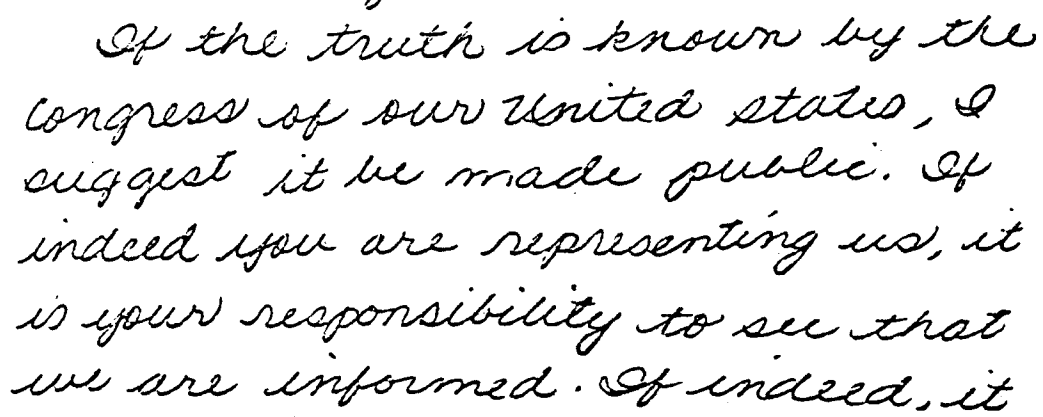 If the truth is known by the
Congress of our United States, I
suggest it be made public. If
indeed you are representing us, it
is your responsibility to see that
we are informed. If indeed, it